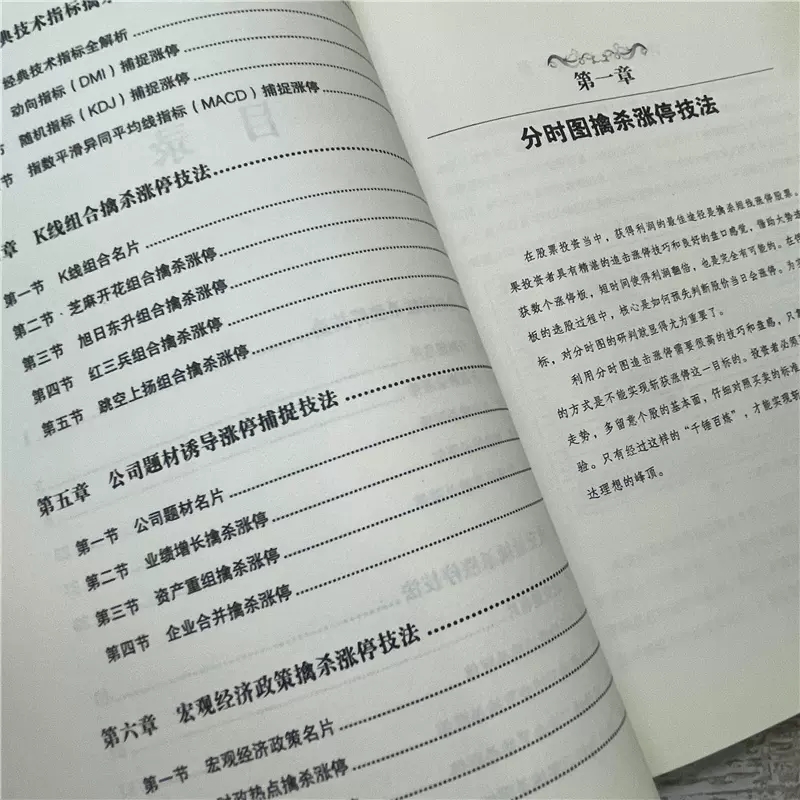 典技术指标擒杀
经典技术指标全解析
动向指标（DMI）捕捉涨停
节 随机指标（KDJ）捕捉涨停
节 指数平滑异同平均线指标（MACD）捕捉涨停
章 K线组合擒杀涨停技法
第一节 K线组合名片
第二节 芝麻开花组合擒杀涨停
第三节 旭日东升组合擒杀涨停
第四节 红三兵组合擒杀涨停
第五节 跳空上扬组合擒杀涨停
第五章 公司题材诱导涨停捕捉技法
第一节 公司题材名片
第二节 业绩增长擒杀涨停
第三节 资产重组擒杀涨停
第四节 企业合并擒杀涨停
第六章 宏观经济政策擒杀涨停技法
第一节 宏观经济政策名片
时政热点擒杀涨停
第一章
分时图擒杀涨停技法
在股票投资当中，获得利润的最佳途径是擒杀短线涨停股票。
果投资者具有精湛的追击涨停技巧和良好的盘口感觉，借助大势
获数个涨停板，短时间使得利润翻倍，也是完全有可能的。在
板的选股过程中，核心是如何预先判断股价当日会涨停。为
标，对分时图的研判就显得尤为重要了。
利用分时图追击涨停需要很高的技巧和盘感，只
的方式是不能实现斩获涨停这一目标的。投资者必须
走势，多留意个股的基本面，仔细对照买卖的标准
验。只有经过这样的“千锤百炼”，才能实现
达理想的峰顶。